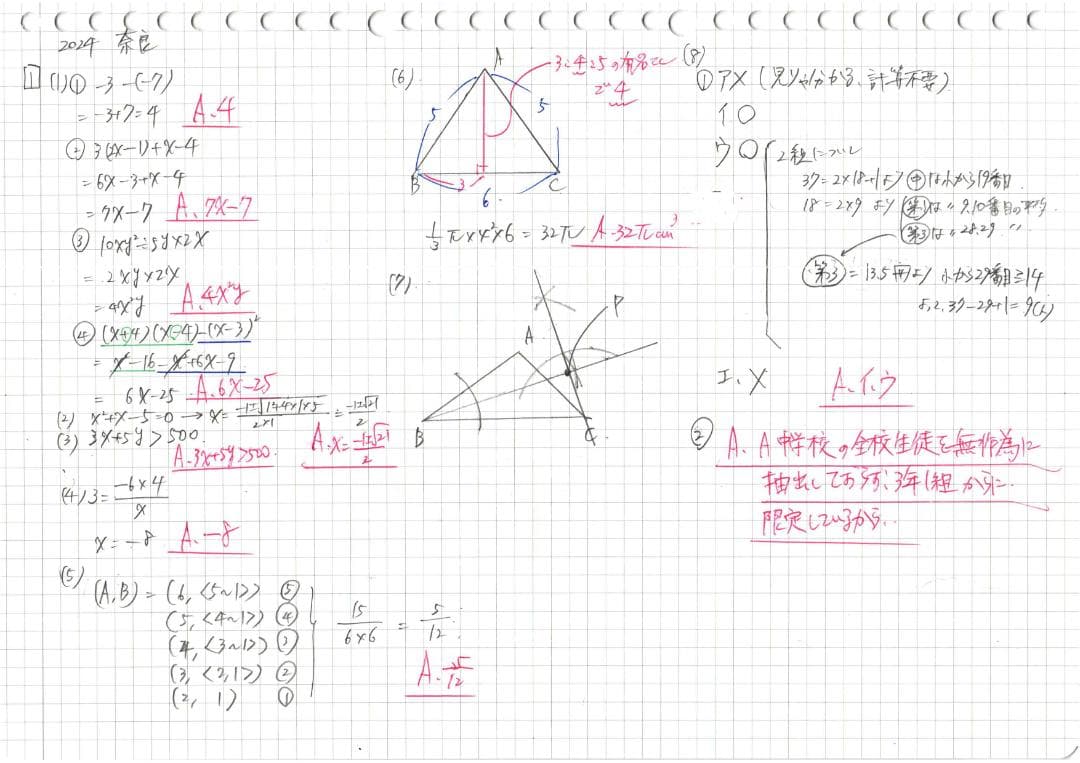 2024 奈良
1 (1)① -3-(-7)
= -3+7=4 A.4
② 3(2x-1)+x-4
=6x-3+x-4
=7x-7 A.7x-7
③ 10xy²÷5y×2x
=2xy×2x
=4x²y A.4x²y
④ (x+4)(x-4)-(x-3)²
= x²-16-x²+6x-9
= 6x-25 A.6x-25
(2) x²+x-5=0 → x= -1±√1+4×1×5 / 2×1 = -1±√21 / 2
A.x= -1±√21 / 2
(3) 3x+5y>500
A.3x+5y>500
(4) 3= -6×4 / x
x=-8 A.-8
(5) (A,B)=(6,<5~1>) ⑤
(5,<4~1>) ④
(4,<3~1>) ③
(3,<2,1>) ②
(2, 1) ①
15 / 6×6 = 5 / 12
A. 5 / 12
(6)
A
3:4:5の有名て
で4
5
5
B
3
C
6
1/3 π×4²×6=32π A.32πcm³
(7)
P
A
B
C
(8)
① ア×(見りゃ分かる、計算不要)
イ○
ウ○ 2組について
37=2×18+1より 中は小から19番目
18=2×9 より 第1は〃9,10番目の平均
第3は〃28,29 〃
第3=13.5回より 小から29番目≧14
よって,37-29+1=9(人)
エ.×
A.イ,ウ
② A.A中学校の全校生徒を無作為に
抽出しておらず、3年1組からに
限定しているから.